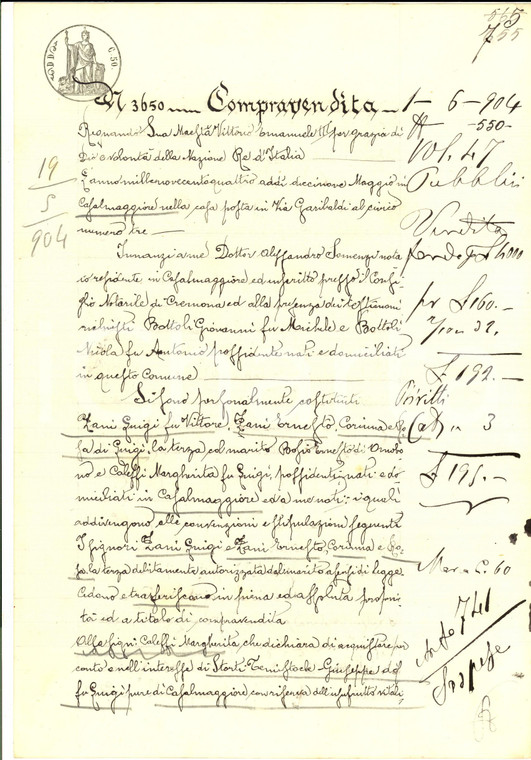 565
755
C. 50
N 3650 Compravendita
1 - 6 - 904
Regnando Sua Maestà Vittorio Emanuele III per grazia di
550
Dio e volontà della Nazione Re d'Italia
Vol. 47
L'anno millenovecentoquattro addì diecinove Maggio in
Pubblici
19
5
904
Casalmaggiore nella casa posta in Via Garibaldi al civico
numero tre
Vendita
Innanzi a me Dottor Alessandro Somenzi nota
io residente in Casalmaggiore ed inscritto presso il Consi
glio Notarile di Cremona ed alla presenza dei testimoni
pr £ 160.-
richiesti Bottoli Giovanni fu Michele e Bottoli
32.
Nicola fu Antonio possidenti nati e domiciliati
in questo Comune
£ 192.-
Si sono personalmente costituiti
Diritti
Zani Luigi fu Vittore, Zani Ernesto, Corinna e Ro
3
sa di Luigi, la terza col marito Bosio Ernesto di Omobo
no e Caleffi Margherita fu Luigi, possidenti, nati e do
£ 195.-
miciliati in Casalmaggiore ed a me noti: i quali
addivengono alle convenzioni e stipulazione seguente
I signori Zani Luigi e Zani Ernesto, Corinna e Ro
sa, la terza debitamente autorizzata dal marito a sensi di legge
60
cedono e trasferiscono in piena ed assoluta proprie
tà ed a titolo di compravendita
741
Alla Caleffi Margherita che dichiara di acquistare per
conto e nell'interesse di Storti Temistocle Giuseppe
fu Luigi pure di Casalmaggiore, con riserva dell'usufrutto vitali